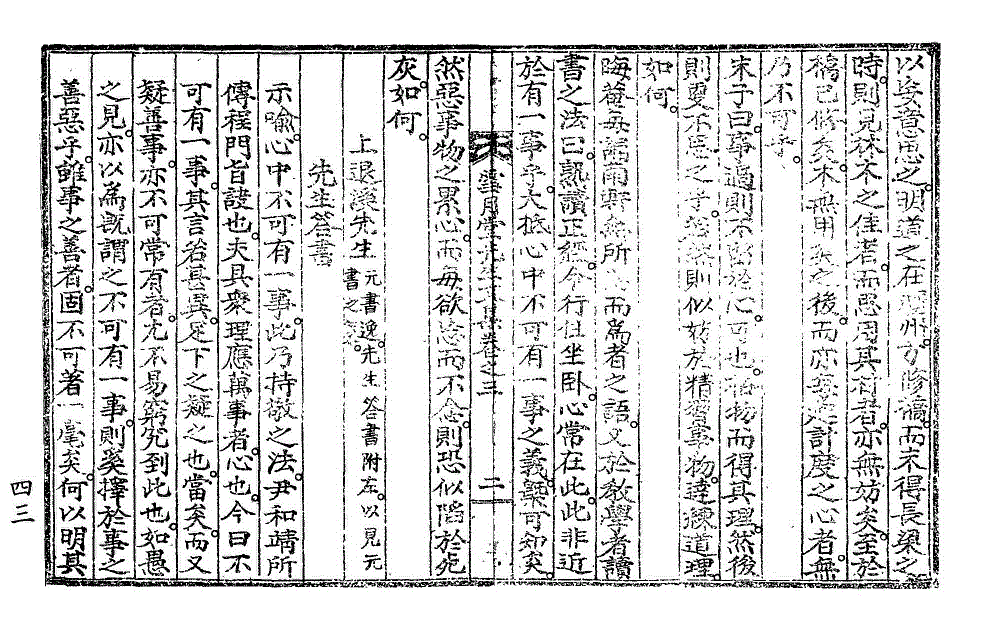 以矣意思之明道之在州方修橋而末得長梁之
時則見林木之佳者而思用其可者亦無妨矣至於
橋已修矣木無用矣之後而亦計度之心者無
乃不可乎
朱子曰事過則不留於心可也格物而得其理然後
則更不思之乎然則似妨於精物達練道理
如何
晦菴每誦兩軒無所而爲者之語又於敎學者讀
書之法曰熟讀正經今行住坐臥心常在此此非近
於有一事乎大抵心中不可有一事之義槩可知矣
月堂先生文集卷之三 二
然惡事物之累心而每欲忘而不念則恐似陷於死
灰如何
上退溪先生 元書逸先生答書附左以見元書之
先生答書
示喩心中不可有一事此乃持敬之法尹和靖所
傳程門旨訣也夫具衆理應萬事者心也今曰不
可有一事其言若甚異足下之疑之也當矣而又
疑善事亦不可常有者尤不易窮究到此也如愚
之見亦以爲旣謂之不可有一事則奚擇於事之
善惡乎雖事之善者固不可著一毫矣何以明其
四三